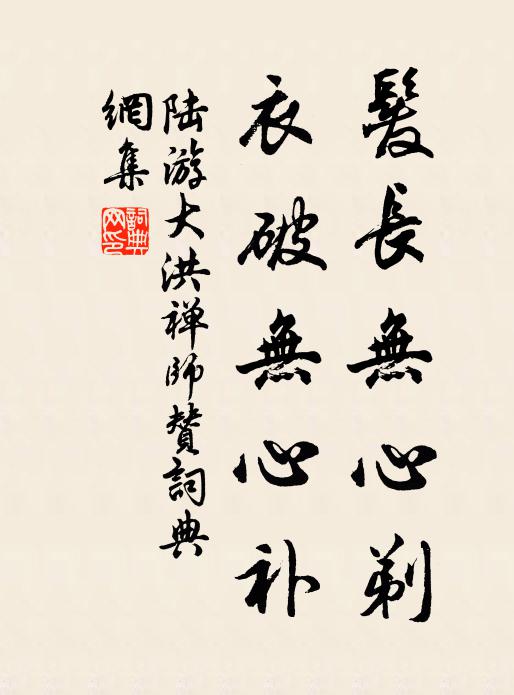 髮長無心剃
衣破無心补
陆游大洪禅師贊詞典
網集
詞典
网印